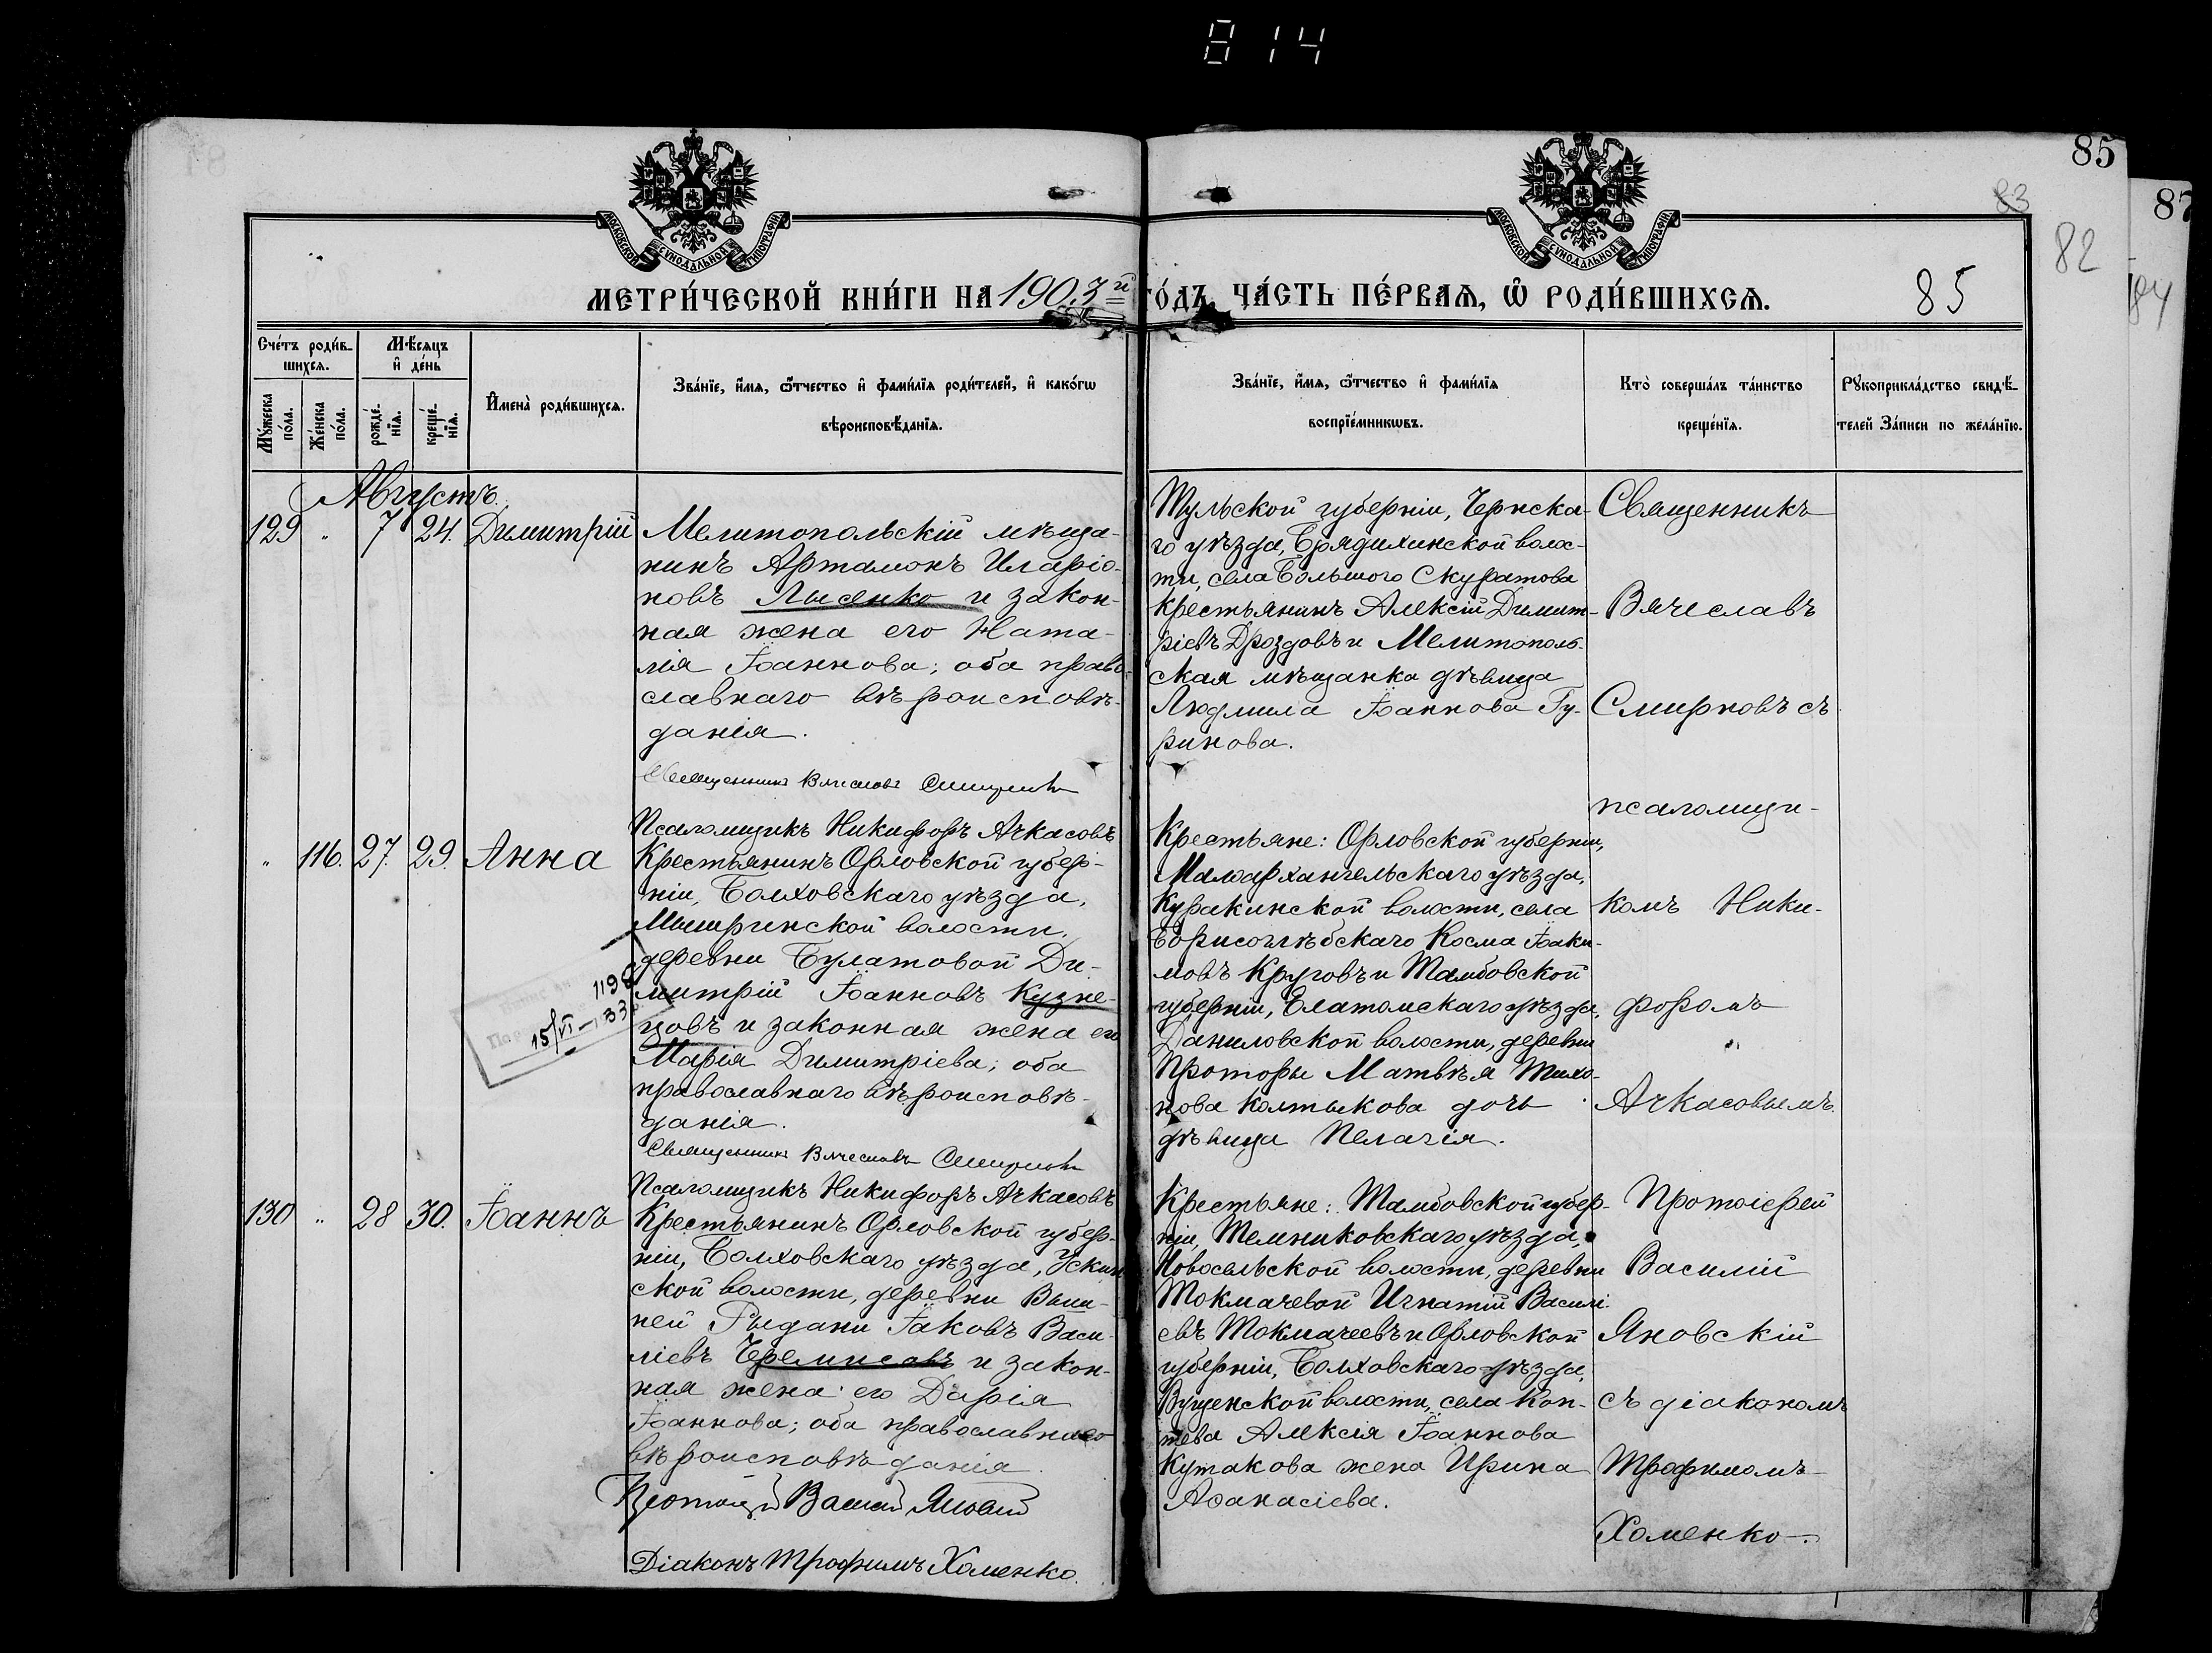 814
85
87
83
82
84
МОСКОВСКОЙ СѴНОДАЛЬНОЙ ТИПОГРАФІИ
МОСКОВСКОЙ СѴНОДАЛЬНОЙ ТИПОГРАФІИ
МЕТРИ́ЧЕСКОЙ КНИ́ГИ НА 1903й ГО́ДЪ, ЧА́СТЬ ПЕ́РВАѦ, Ѽ РОДИ́ВШИХСѦ.
85
Сче́тъ роди́в-
шихсѧ.
Мѣ́сѧцъ
и҆ де́нь
Мꙋ́жеска по́ла.
Же́нска по́ла.
рожде́-нїѧ.
креще́-нїѧ.
И҆мена̀ роди́вшихсѧ.
Зва́нїе, и҆́мѧ, ѻ҆́тчество и҆ фами́лїѧ роди́телей, и҆ како́гѡ
вѣроисповѣ́данїѧ.
Зва́нїе, и҆́мѧ, ѻ҆́тчество и҆ фами́лїѧ
воспрїе́мникѡвъ.
Кто̀ соверша́лъ та́инство
креще́нїѧ.
Рꙋкоприкла́дство свидѣ́-
телей За́писи по жела́нїю.
Августъ.
129 " 7 24. Димитрій
Мелитопольскій мѣща-
нинъ Артамонъ Иларіо-
новъ Лысенко и закон-
ная жена его Ната-
лія Іоаннова; оба право-
славнаго вѣроисповѣ-
данія.
Священникъ Вячеславъ Смирновъ
Псаломщикъ Никифоръ Ачкасовъ
Тульской губерніи, Чернска-
го уѣзда, Бредихинской волос-
ти, села Большого Скуратова
крестьянинъ Алексій Димит-
ріевъ Дроздовъ и Мелитополь-
ская мѣщанка дѣвица
Людмила Іоаннова Гу-
ринова.
Священникъ
Вячеславъ
Смирновъ съ
псаломщи-
комъ Ники-
форомъ
Ачкасовымъ.
" 116. 27. 29. Анна
Крестьянинъ Орловской губер-
ніи, Болховскаго уѣзда,
волости,
деревни Булатовой Ди-
митрій Іоанновъ Кузне-
цовъ и законная жена его
Марія Димитріева; оба
православнаго вѣроисповѣ-
данія.
Священникъ Вячеславъ Смирновъ
Псаломщикъ Никифоръ Ачкасовъ
15/VI–33
Крестьяне: Орловской губерніи,
Малоархангельскаго уѣзда,
Куракинской волости, села
Борисоглѣбскаго Косма Іоаки-
мовъ Круговъ и Тамбовской
губерніи, Елатомскаго уѣзда,
Даниловской волости, деревни
Проторы Матвѣя Тихо-
нова Колтыкова дочь
дѣвица Пелагія.
130 " 28 30. Іоаннъ
Крестьянинъ Орловской губер-
ніи, Болховскаго уѣзда,
ской волости, деревни Выш-
ней Рыдани Іаковъ Васи-
ліевъ Черемисовъ и закон-
ная жена его Дарія
Іоаннова; оба православнаго
вѣроисповѣданія.
Протоіерей Василій Яновскій
Діаконъ Трофимъ Хоменко.
Крестьяне: Тамбовской губер-
ніи, Темниковскаго уѣзда,
Новосельской волости, деревни
Токмачевой Игнатій Василі-
евъ Токмачевъ и Орловской
губерніи, Болховскаго уѣзда,
волости, села Коп-
тева Алексія Іоаннова
Кутакова жена Ирина
Аѳанасіева.
Протоіерей
Василій
Яновскій
съ діакономъ
Трофимомъ
Хоменко.